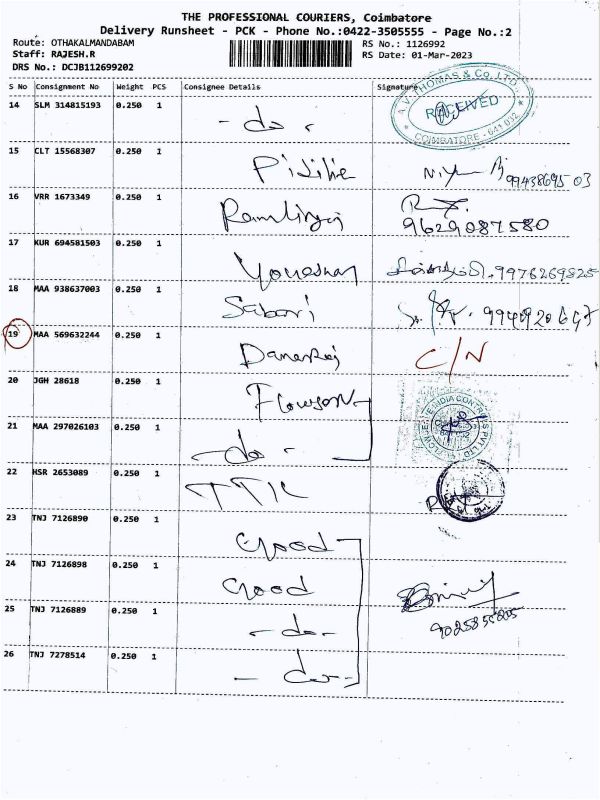 THE PROFESSIONAL COURIERS, Coimbatore
Delivery Runsheet - PCK - Phone No.:0422-3505555 - Page No.:2
Route: OTHAKALMANDABAM
RS No.: 1126992
Staff: RAJESH.R
RS Date: 01-Mar-2023
DRS No.: DCJB112699202
S No Consignment No Weight PCS Consignee Details Signature
14 SLM 314815193 0.250 1 - do - A.V. THOMAS & Co. LTD. RECEIVED COIMBATORE - 641 032
15 CLT 15568307 0.250 1 Pidilite 9943869503
16 VRR 1673349 0.250 1 9629087580
17 KUR 694581503 0.250 1 Yogeshan 9976269825
18 MAA 938637003 0.250 1 Sabari
19 MAA 569632244 0.250 1 Danaraj C/N
20 JGH 28618 0.250 1
21 MAA 297026103 0.250 1 - do -
22 HSR 2653089 0.250 1 TTK
23 TNJ 7126890 0.250 1 Good
24 TNJ 7126898 0.250 1 Good
25 TNJ 7126889 0.250 1 - do -
26 TNJ 7278514 0.250 1 - do -